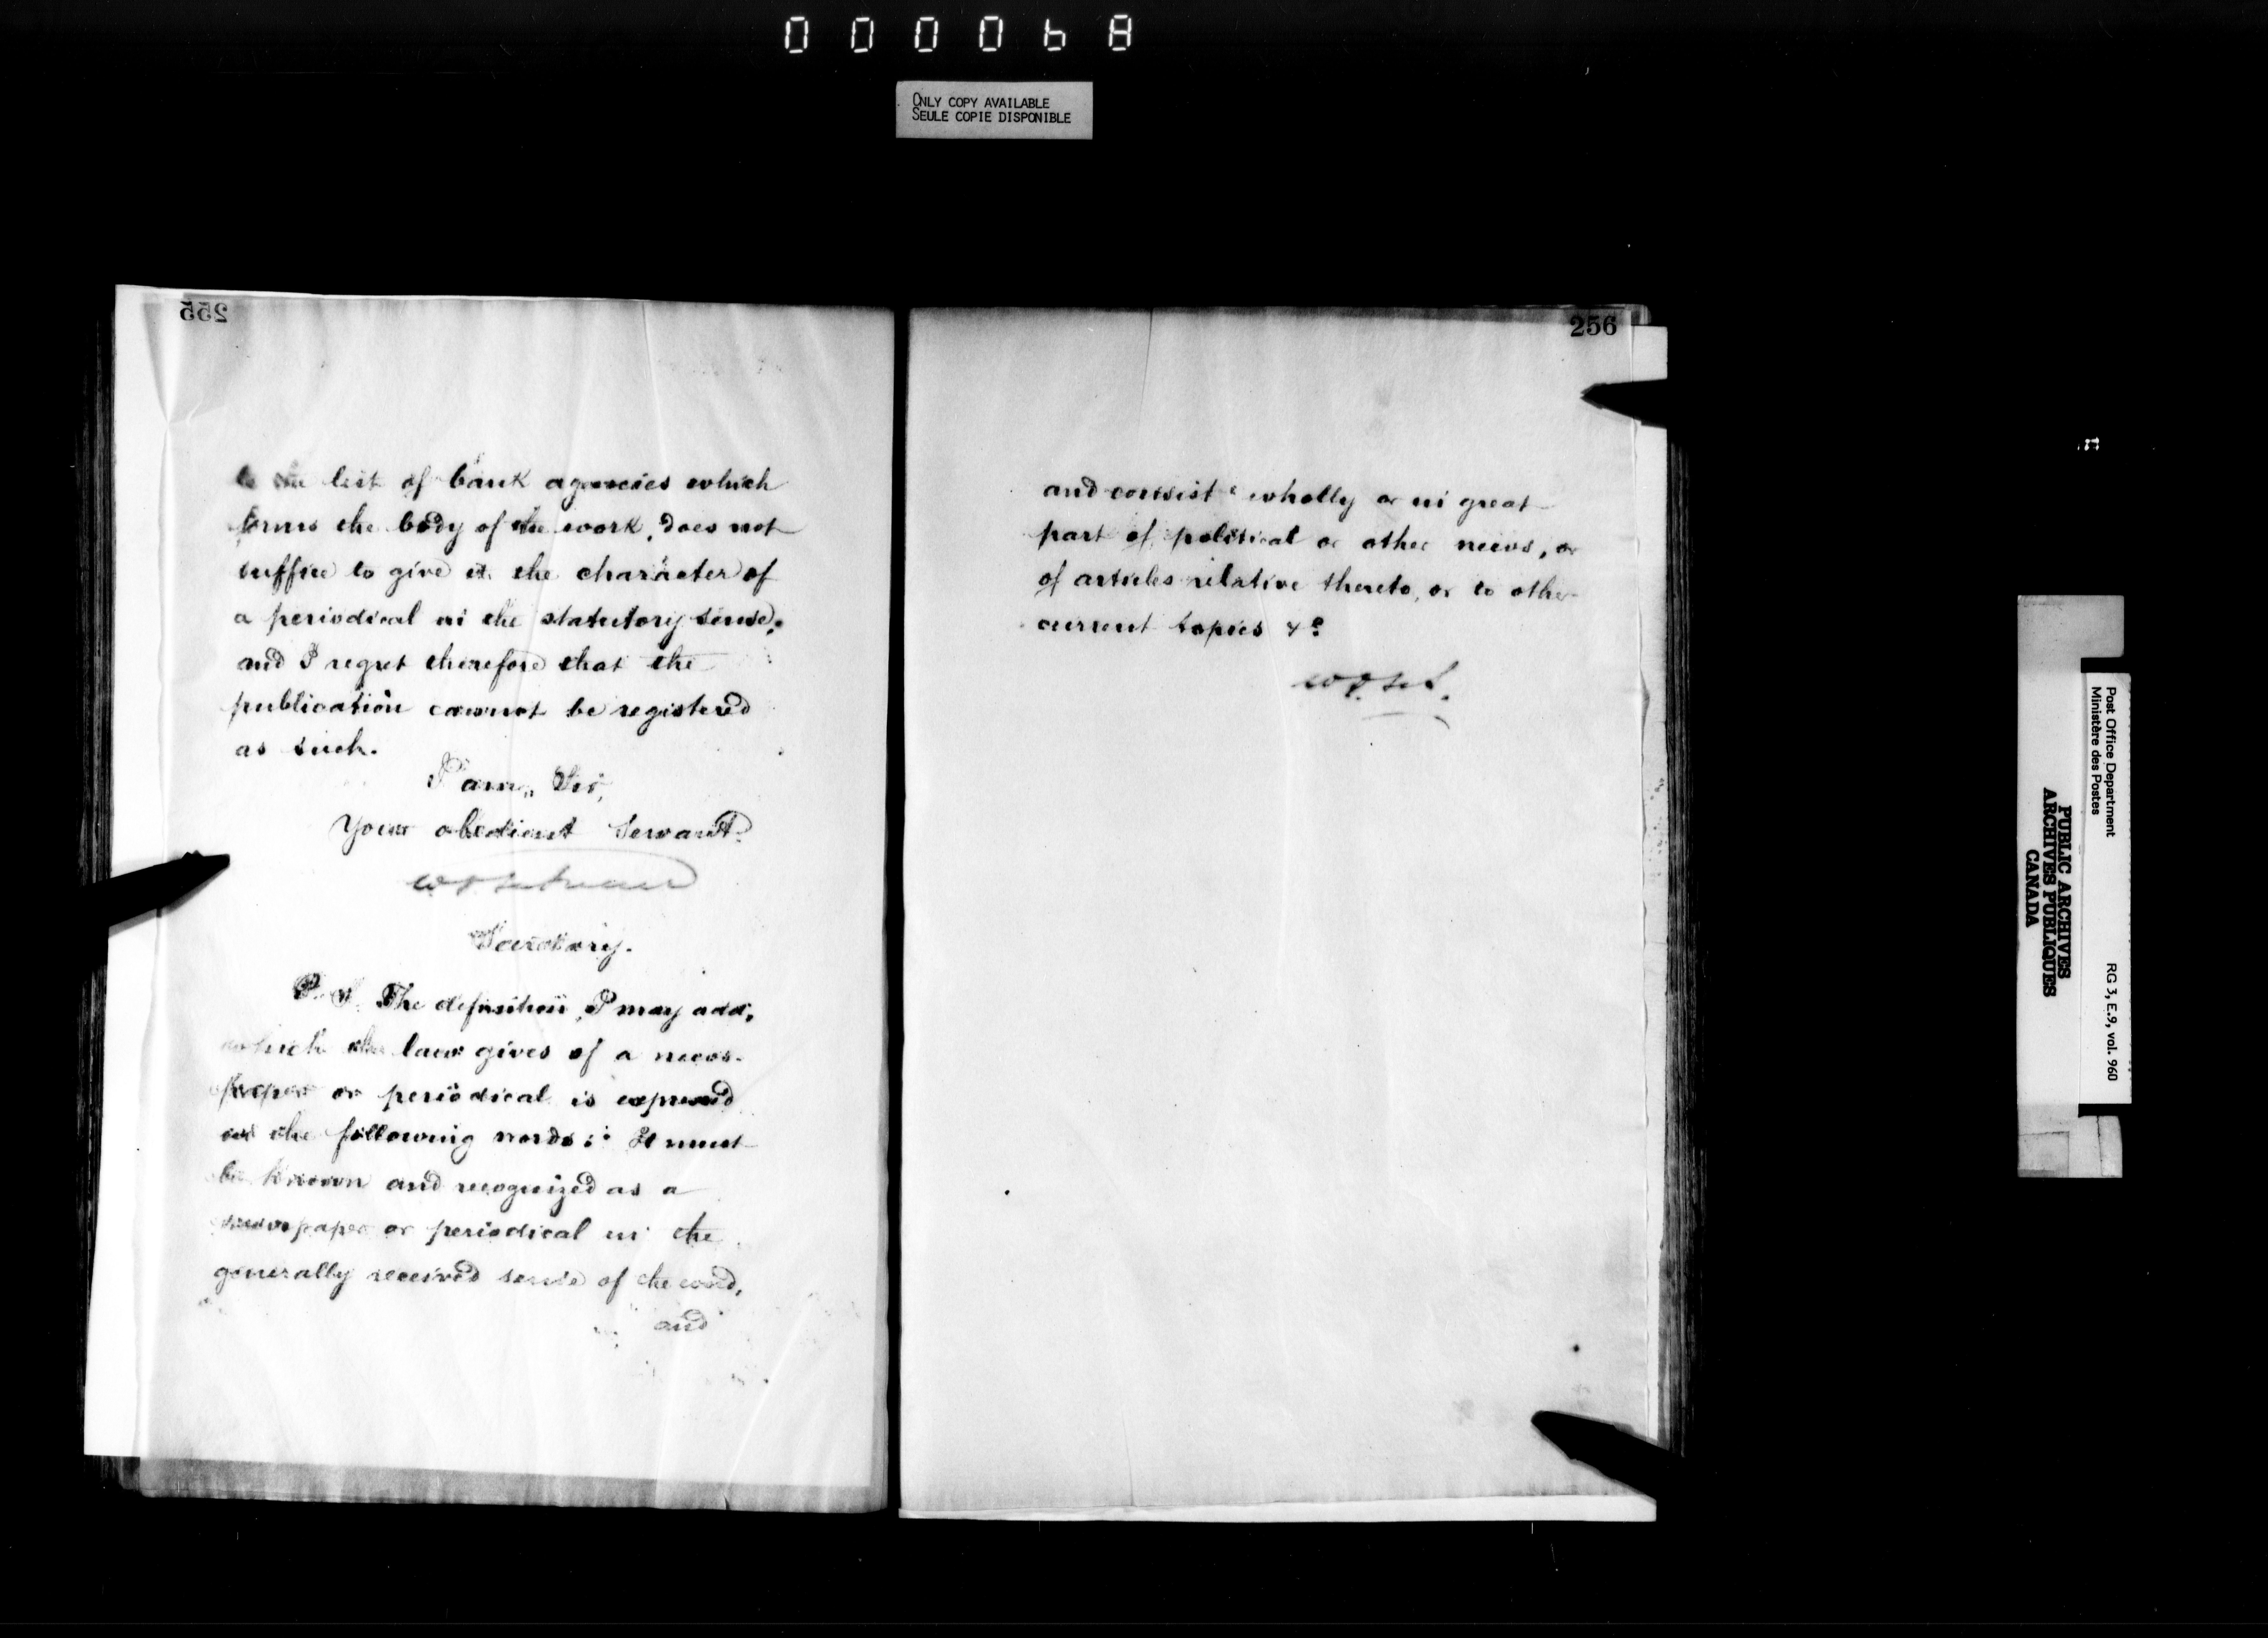 000068
ONLY COPY AVAILABLE
SEULE COPIE DISPONIBLE
255
to the list of bank agencies which
forms the body of the work, does not
suffice to give it the character of
a periodical in the statutory sense,
and I regret therefore that the
publication cannot be registered
as such.
I am, Sir,
Your obedient Servant.
Secretary.
P.S. The definition, I may add,
which the law gives of a news-
paper or periodical is expressed
in the following words: It must
be known and recognized as a
newspaper or periodical in the
generally received sense of the word,
and
256
and consist wholly or in great
part of political or other news, or
of articles relative thereto, or to other
current topics &c
Post Office Department
Ministère des Postes
RG 3, E.9, vol. 960
PUBLIC ARCHIVES
ARCHIVES PUBLIQUES
CANADA